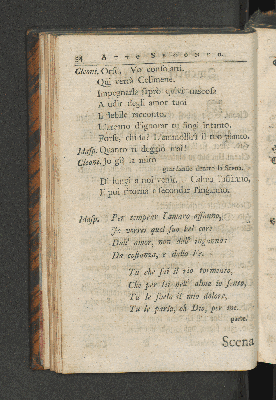 34 ATTO SECONDO.
Cleont. Orsù, Vo' consolarti.
Qui verrà Celimene.
Impegnarla saprò quivi nascosa
A udir degli amor tuoi
Il flebile racconto.
L'arcano d'ignorar tu fingi intanto.
Forse, chi sa? L'ammollirà il tuo pianto.
Idasp. Quanto ti deggio mai!
Cleont. Io già la miro
guardando dentro la Scena.
Di lungi a noi venir. Calma l'affanno,
E poi ritorna a secondar l'inganno.
Idasp. Per temprar l'amaro affanno,
Io vorrei quel suo bel core
Dall' amor, non dall' inganno:
Da costanza, e dalla Fe.
Tu che sai il rio tormento,
Che per lei nell' alma io sento,
Tu le svela il mio dolore,
Tu le parla, oh Dio, per me.
parte.
Scena